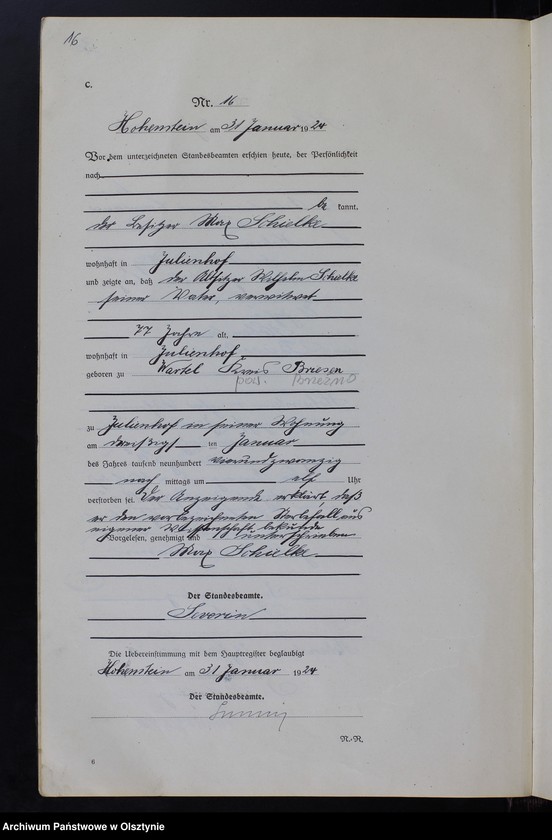 16
C.
Nr. 16
Hohenstein am 31 Januar 1924
Vor dem unterzeichneten Standesbeamten erschien heute, der Persönlichkeit
nach
be kannt,
der Besitzer Max Schielke
wohnhaft in Julienhof
und zeigte an, daß der Altsitzer Wilhelm Schielke
seiner Vater, verwitwet
77 Jahre alt,
wohnhaft in Julienhof
geboren zu Wartel Kreis Briesen
pow. Brzezno
zu Julienhof in seiner Wohnung
am dreißigst ten Januar
des Jahres tausend neunhundert vierundzwanzig
nach mittags um elf Uhr
verstorben sei. Der Anzeigende erklärt daß
er den vorbezeichneten Sterbefall aus
eigener Wissenschaft bekunde
Vorgelesen, genehmigt und unterschrieben
Max Schielke
Der Standesbeamte.
Severin
Die Uebereinstimmung mit dem Hauptregister beglaubigt
Hohenstein am 31 Januar 1924
Der Standesbeamte.
N.-R.
6
Archiwum Państwowe w Olsztynie